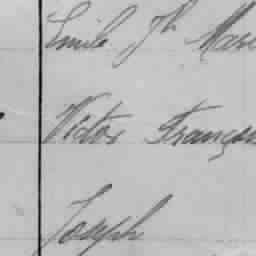 Emile Jh Mari
Victor François
Joseph